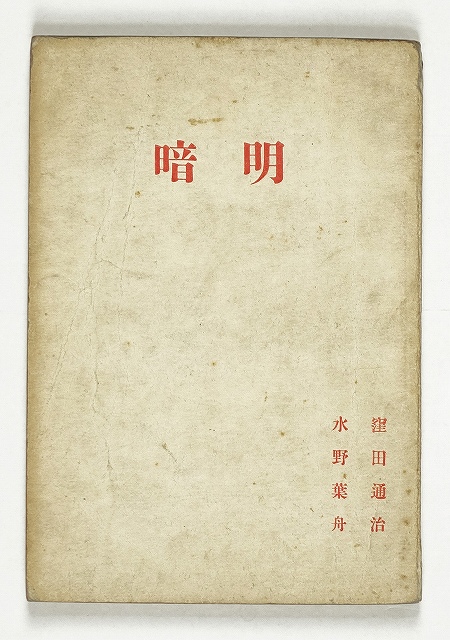 明暗
窪田通治
水野葉舟